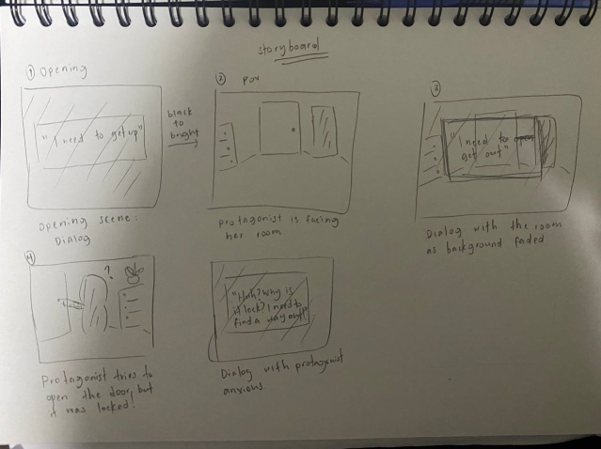 storyboard
① Opening
"I need to get up"
Opening scene:
Dialog
black
to
bright
② POV
Protagonist is facing
her room
③
"I need to
get out"
Dialog with the room
as background faded
④
?
Protagonist tries to
open the door, but
it was locked!
"Huh? Why is
it lock? I need to
find a way out!"
Dialog with protagonist
anxious